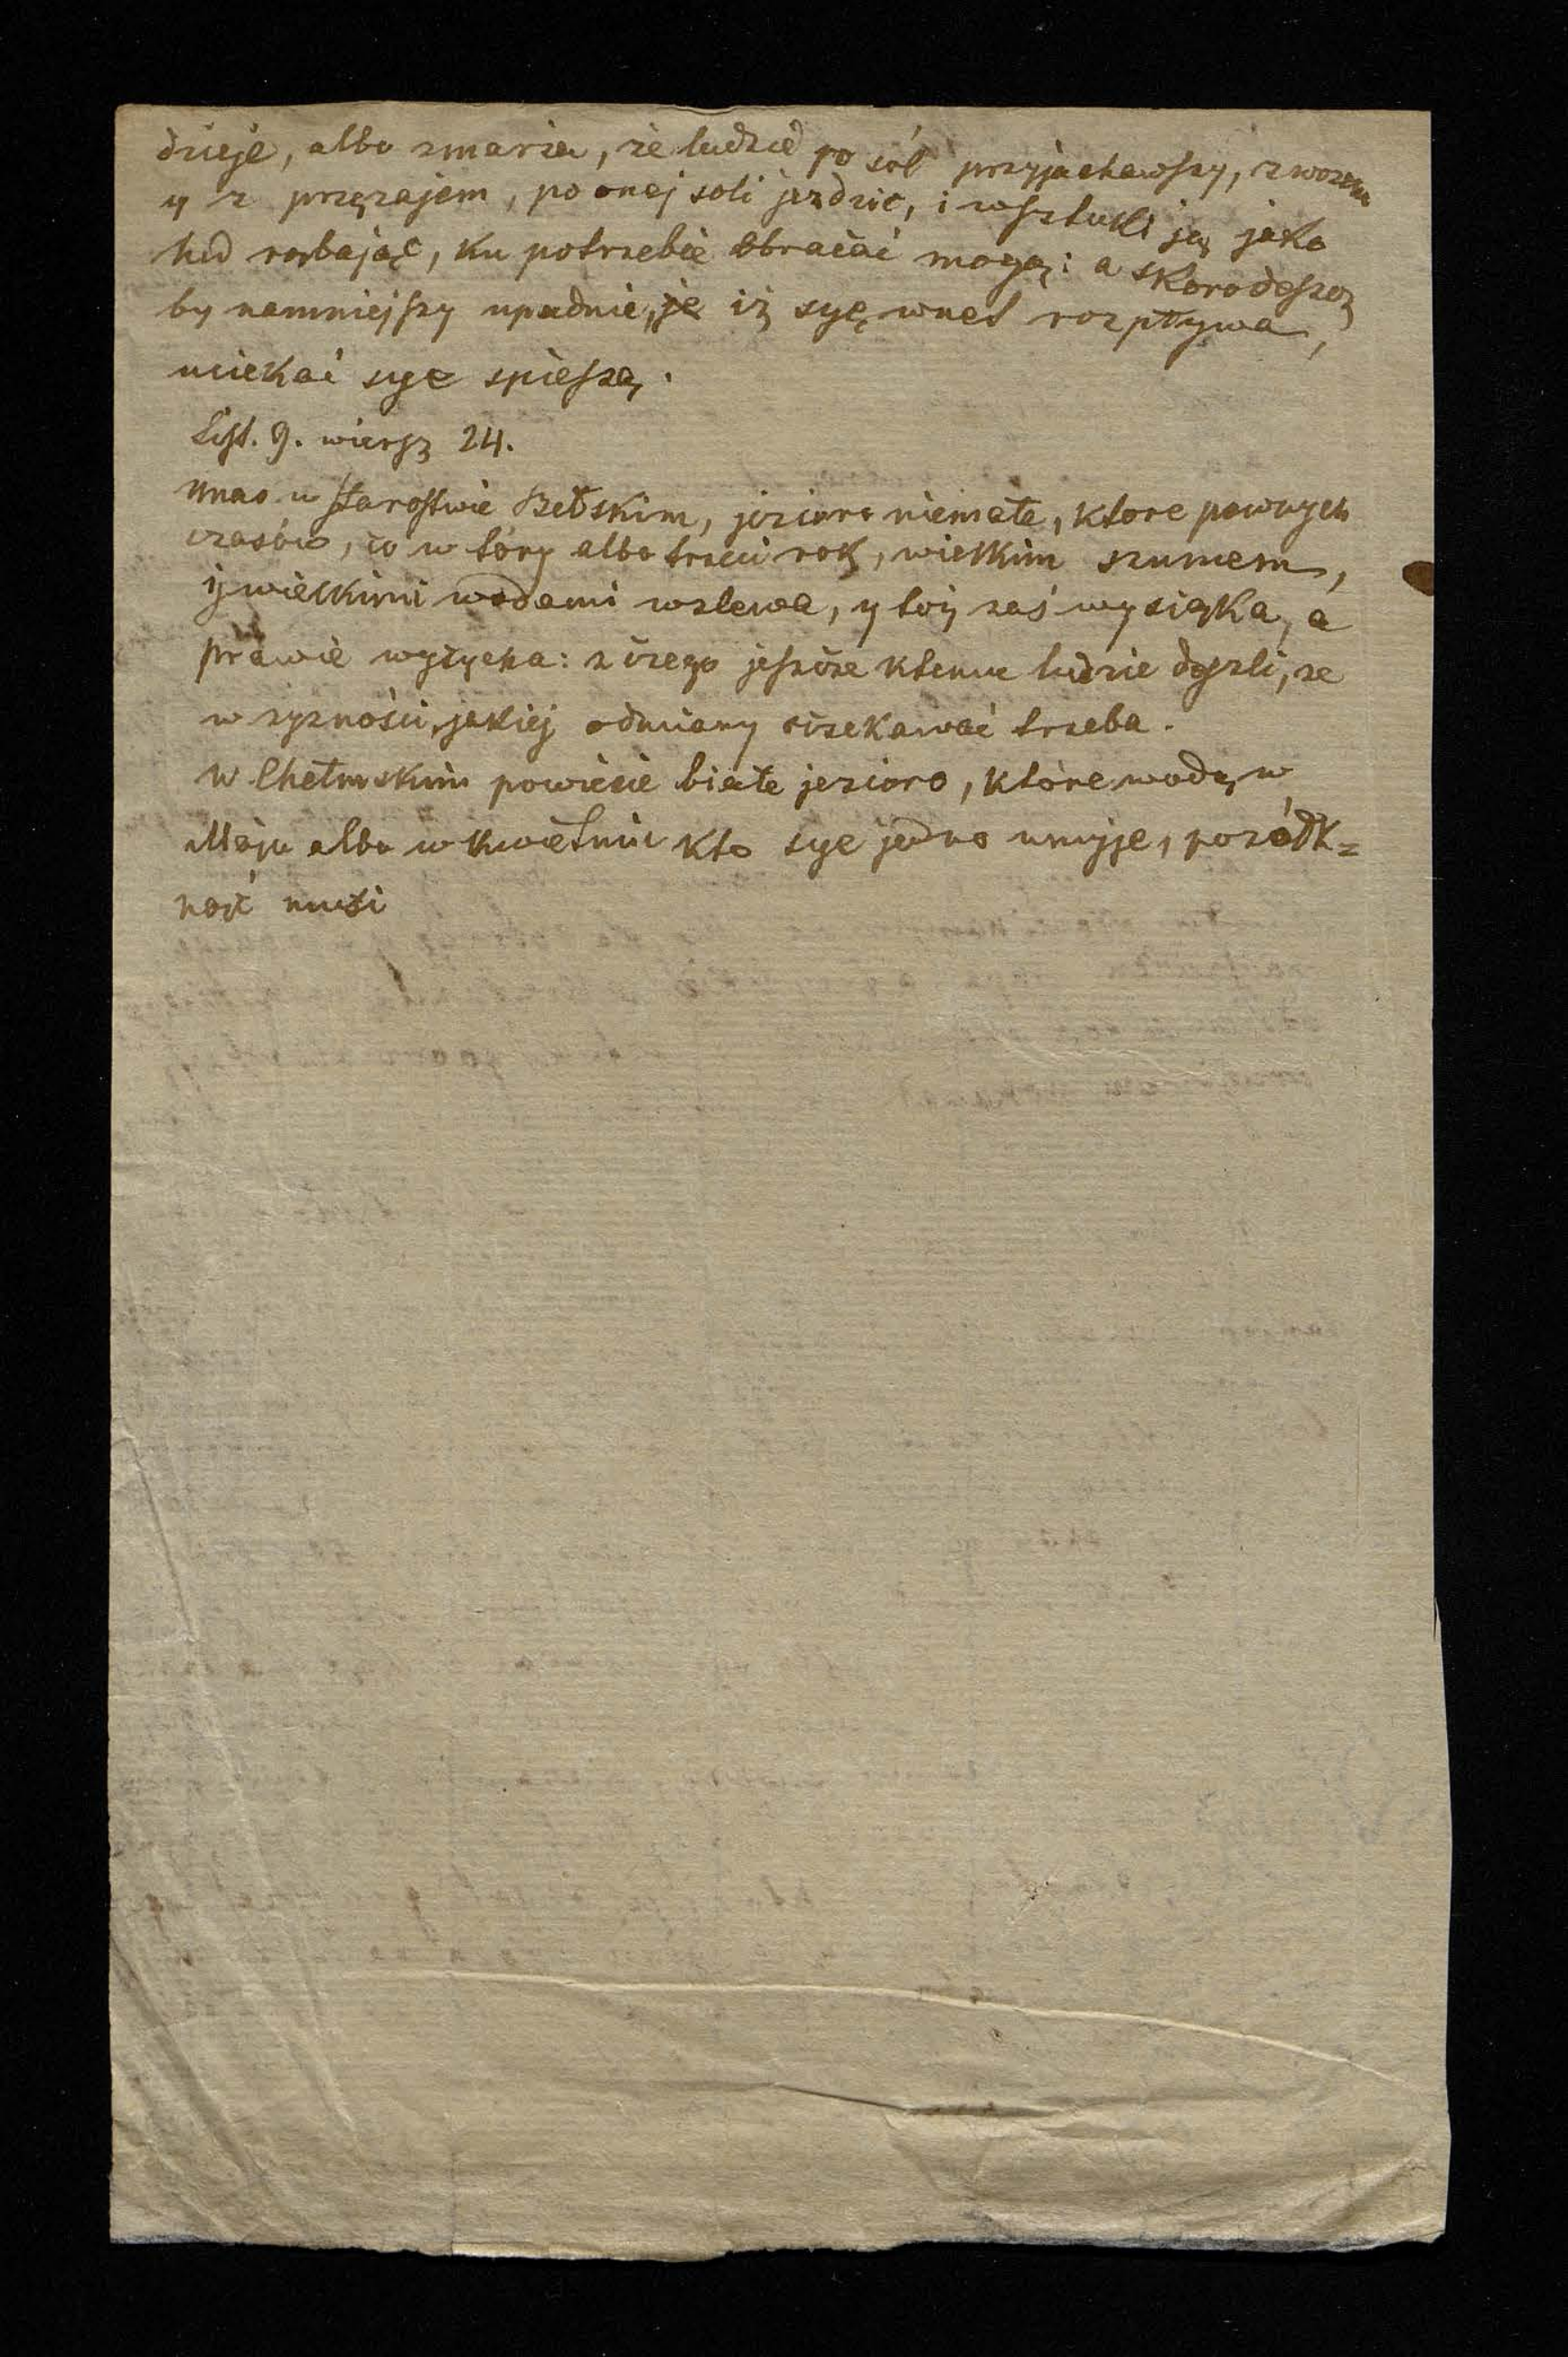 dzieje, albo zmarza, że ludzie po sól przyjachawszy, z wozem
y z przęzajem, po onej soli jezdzic, i wsztuki ją jako
lud rąbając, ku potrzebie obracać mogą: a skoro deszcz
by namniejszy upadnie, iż syę wnet rozpływa,
uciekać sye spieszą.
List. 9. wiersz 24.
Unas w starostwie Bełskim, jezioro niemałe, ktore pewnych
czasów, co w tóry albo trzeci rok, wielkim szumem,
ij wielkimi wodami wzlewa, y toij zaś wysiąka, a
prawie wysycha: z czego jeszcze ktemu ludzie doszli, że
w żyzności jakiej odmiany oczekawać trzeba.
W Chełmskim powiecie białe jezioro, które wodą w
Maju albo w Kwietniu kto sye jedno umyje, pozółk=
nąć musi